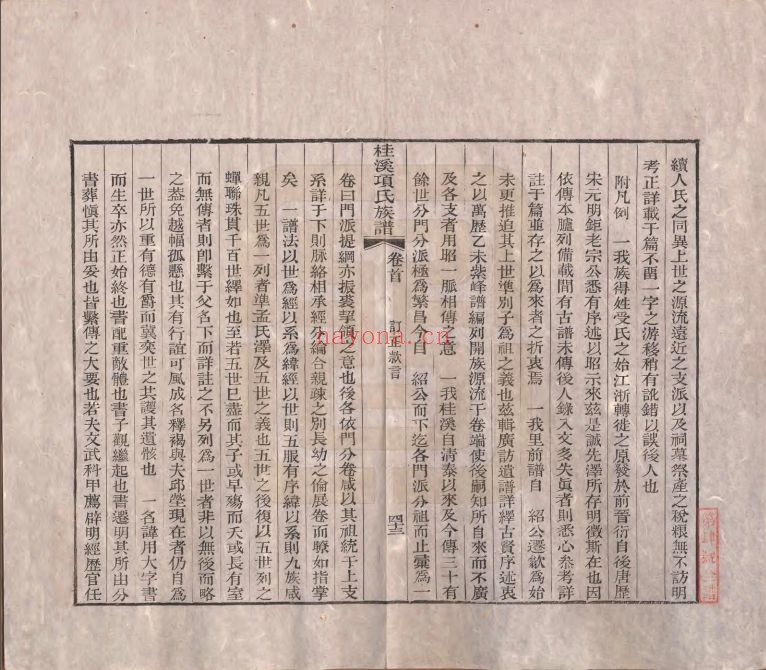 續人氏之同異上世之源流遠近之支派以及祠墓祭產之稅糧無不訪明
考正詳載于篇不敢一字之游移稍有訛錯以誤後人也
附凡例　一我族得姓受氏之始江浙轉徙之原發於前晉衍自後唐歷
宋元明鉅老宗公悉有序述以昭示來茲是誠先澤所存明徵斯在也因
依傳本臚列備載間有古譜未傳後人錄入文多失眞者則悉心叅考詳
註于篇並存之以爲來者之折衷焉　一我里前譜自　紹公遷歙爲始
未更推追其上世準別子爲祖之義也茲輯廣訪遺譜詳繹古賢序述衷
之以萬歷乙未紫峰譜編列開族源流于卷端使後嗣知所自來而不廣
及各支者用昭一脈相傳之意　一我桂溪自清泰以來及今傳三十有
餘世分門分派極爲繁昌今自　紹公而下迄各門派分祖而止彙爲一
桂溪項氏族譜　卷首　訂譜叙言　四三
卷曰門派提綱亦振裘挈領之意也後各依門分卷咸以其祖統于上支
系詳于下則脉絡相承經分綸合親疎之別長幼之倫展卷而瞭如指掌
矣　一譜法以世爲經以系爲緯經以世則五服有序緯以系則九族咸
親凡五世爲一列者準孟氏澤及五世之義也五世之後復以五世列之
蟬聯珠貫千百世繹如也至若五世已盡而其子或早殤而夭或長有室
而無傳者則卽繫于父名下而詳註之不另列爲一世者非以無後而略
之葢免越幅孤懸也其有行誼可風成名釋褐與夫邱塋現在者仍自爲
一世所以重有德有爵而冀奕世之共護其遺骸也　一名諱用大字書
而生卒亦然正始終也書配重敵體也書子觀繼起也書遷明其所由分
書葬愼其所由妥也皆繫傳之大要也若夫文武科甲薦辟明經歷官任
nayona.cn